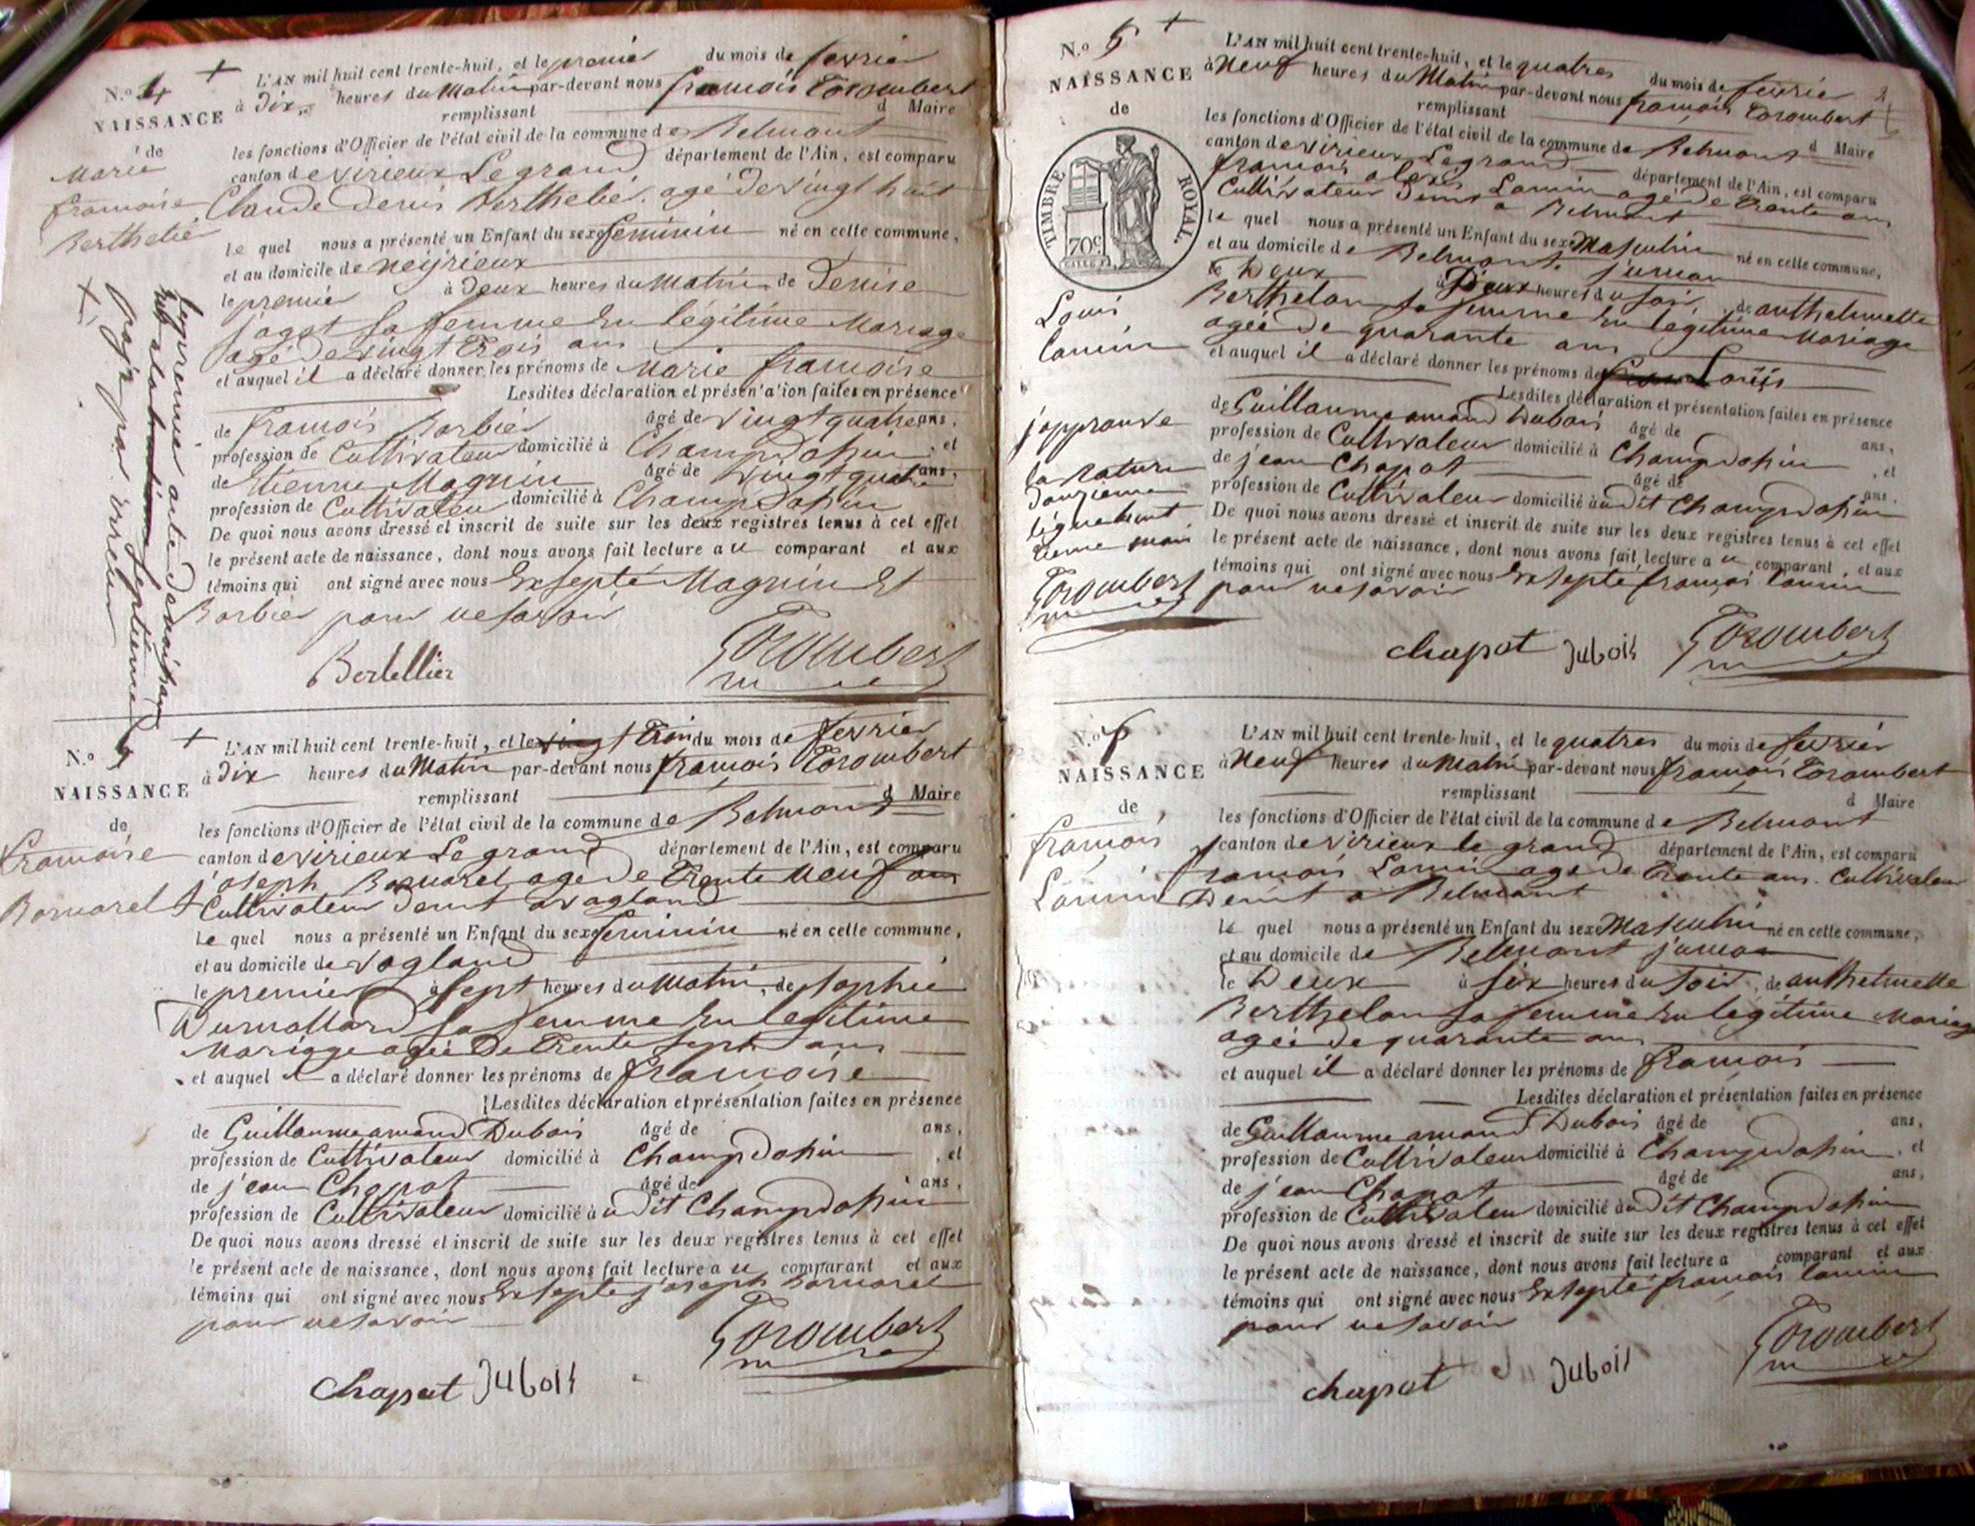 N.º 4 +
NAISSANCE
de
Marie
francoise
Berthelié
L'AN mil huit cent trente-huit, et le premier du mois de fevrier
à Dix heures du Matin par-devant nous francois Corombert
remplissant d Maire
les fonctions d'Officier de l'état civil de la commune de Belmont
canton de virieux Le grand département de l'Ain, est comparu
Claude Denis Berthelié. agé de vingt huit
Le quel nous a présenté un Enfant du sexe feminin né en cette commune,
et au domicile de neÿrieux
le premier à Deux heures du Matin de Denise
jagot sa femme En legitime Mariage
agé de vingt trois ans
et auquel il a déclaré donner les prénoms de Marie francoise
Lesdites déclaration et présentation faites en présence
de francois Barbier âgé de vingt quatre ans,
profession de Cultivateur domicilié à Champdossin, et
de Etienne Magnin âgé de vingt quatre ans,
profession de Cultivateur domicilié à Champdossin
De quoi nous avons dressé et inscrit de suite sur les deux registres tenus à cet effet
le présent acte de naissance, dont nous avons fait lecture au comparant et aux
témoins qui ont signé avec nous Exsepté Magnin Et
Barbier pour ne savoir
Bertellier Corombert
le premier acte de naissance
page par erreur
N.º
NAISSANCE
de
francoise
Bornarel
+ L'AN mil huit cent trente-huit, et le vingt trois du mois de fevrier
à Dix heures du Matin par-devant nous francois Corombert
remplissant d Maire
les fonctions d'Officier de l'état civil de la commune de Belmont
canton de virieux Le grand département de l'Ain, est comparu
joseph Bornarel age de Trente Neuf ans
Cultivateur Demt a vogland
Le quel nous a présenté un Enfant du sexe feminin né en cette commune,
et au domicile de vogland
le premier à sept heures du Matin, de sophie
Dumollard sa femme En legitime
Mariage agée De Trente sept ans
et auquel il a déclaré donner les prénoms de francoise
Lesdites déclaration et présentation faites en présence
de Guillaume amand Dubois âgé de ans,
profession de Cultivateur domicilié à Champdossin, et
de jean Chapot âgé de ans,
profession de Cultivateur domicilié audit Champdossin
De quoi nous avons dressé et inscrit de suite sur les deux registres tenus à cet effet
le présent acte de naissance, dont nous avons fait lecture au comparant et aux
témoins qui ont signé avec nous Exsepté joseph Bornarel
pour ne savoir
Corombert
Chapot Dubois
N.º 6 +
NAISSANCE
de
TIMBRE ROYAL.
70c
Louis
Lannin
j'approuve
la rature
douzieme
ligne
Corombert
L'AN mil huit cent trente-huit, et le quatres du mois de fevrier
à Neuf heures du Matin par-devant nous francois Corombert
remplissant d Maire
les fonctions d'Officier de l'état civil de la commune de Belmont
canton de virieux Le grand département de l'Ain, est comparu
francois alexis Lannin agé de Trente ans
Cultivateur Demt a Belmont
le quel nous a présenté un Enfant du sexe Masculin né en cette commune,
et au domicile de Belmont. jumau
le Deux à Deux heures du soir, de anthelmette
Berthelon sa femme En legitime Mariage
agée de quarante ans
et auquel il a déclaré donner les prénoms de Louis
Lesdites déclaration et présentation faites en présence
de Guillaume amand Dubois âgé de ans,
profession de Cultivateur domicilié à Champdossin, et
de jean Chapot âgé de ans,
profession de Cultivateur domicilié audit Champdossin
De quoi nous avons dressé et inscrit de suite sur les deux registres tenus à cet effet
le présent acte de naissance, dont nous avons fait lecture au comparant, et aux
témoins qui ont signé avec nous Exsepté francois Lannin
pour ne savoir
chapot Dubois Corombert
N.º 7
NAISSANCE
de
francois
Lannin
L'AN mil huit cent trente-huit, et le quatres du mois de fevrier
à Neuf heures du Matin par-devant nous francois Corombert
remplissant d Maire
les fonctions d'Officier de l'état civil de la commune de Belmont
canton de virieux le grand département de l'Ain, est comparu
francois Lannin age de Trente ans. Cultivateur
Demt a Belmont
Le quel nous a présenté un Enfant du sexe Masculin né en cette commune,
et au domicile de Belmont jumau
le Deux à six heures du soir, de anthelmette
Berthelon sa femme En legitime Mariage
agée de quarante ans
et auquel il a déclaré donner les prénoms de francois
Lesdites déclaration et présentation faites en présence
de Guillaume amand Dubois âgé de ans,
profession de Cultivateur domicilié à Champdossin, et
de jean Chapot âgé de ans,
profession de Cultivateur domicilié audit Champdossin
De quoi nous avons dressé et inscrit de suite sur les deux registres tenus à cet effet
le présent acte de naissance, dont nous avons fait lecture a comparant et aux
témoins qui ont signé avec nous Exsepté francois Lannin
pour ne savoir
Corombert
chapot Dubois